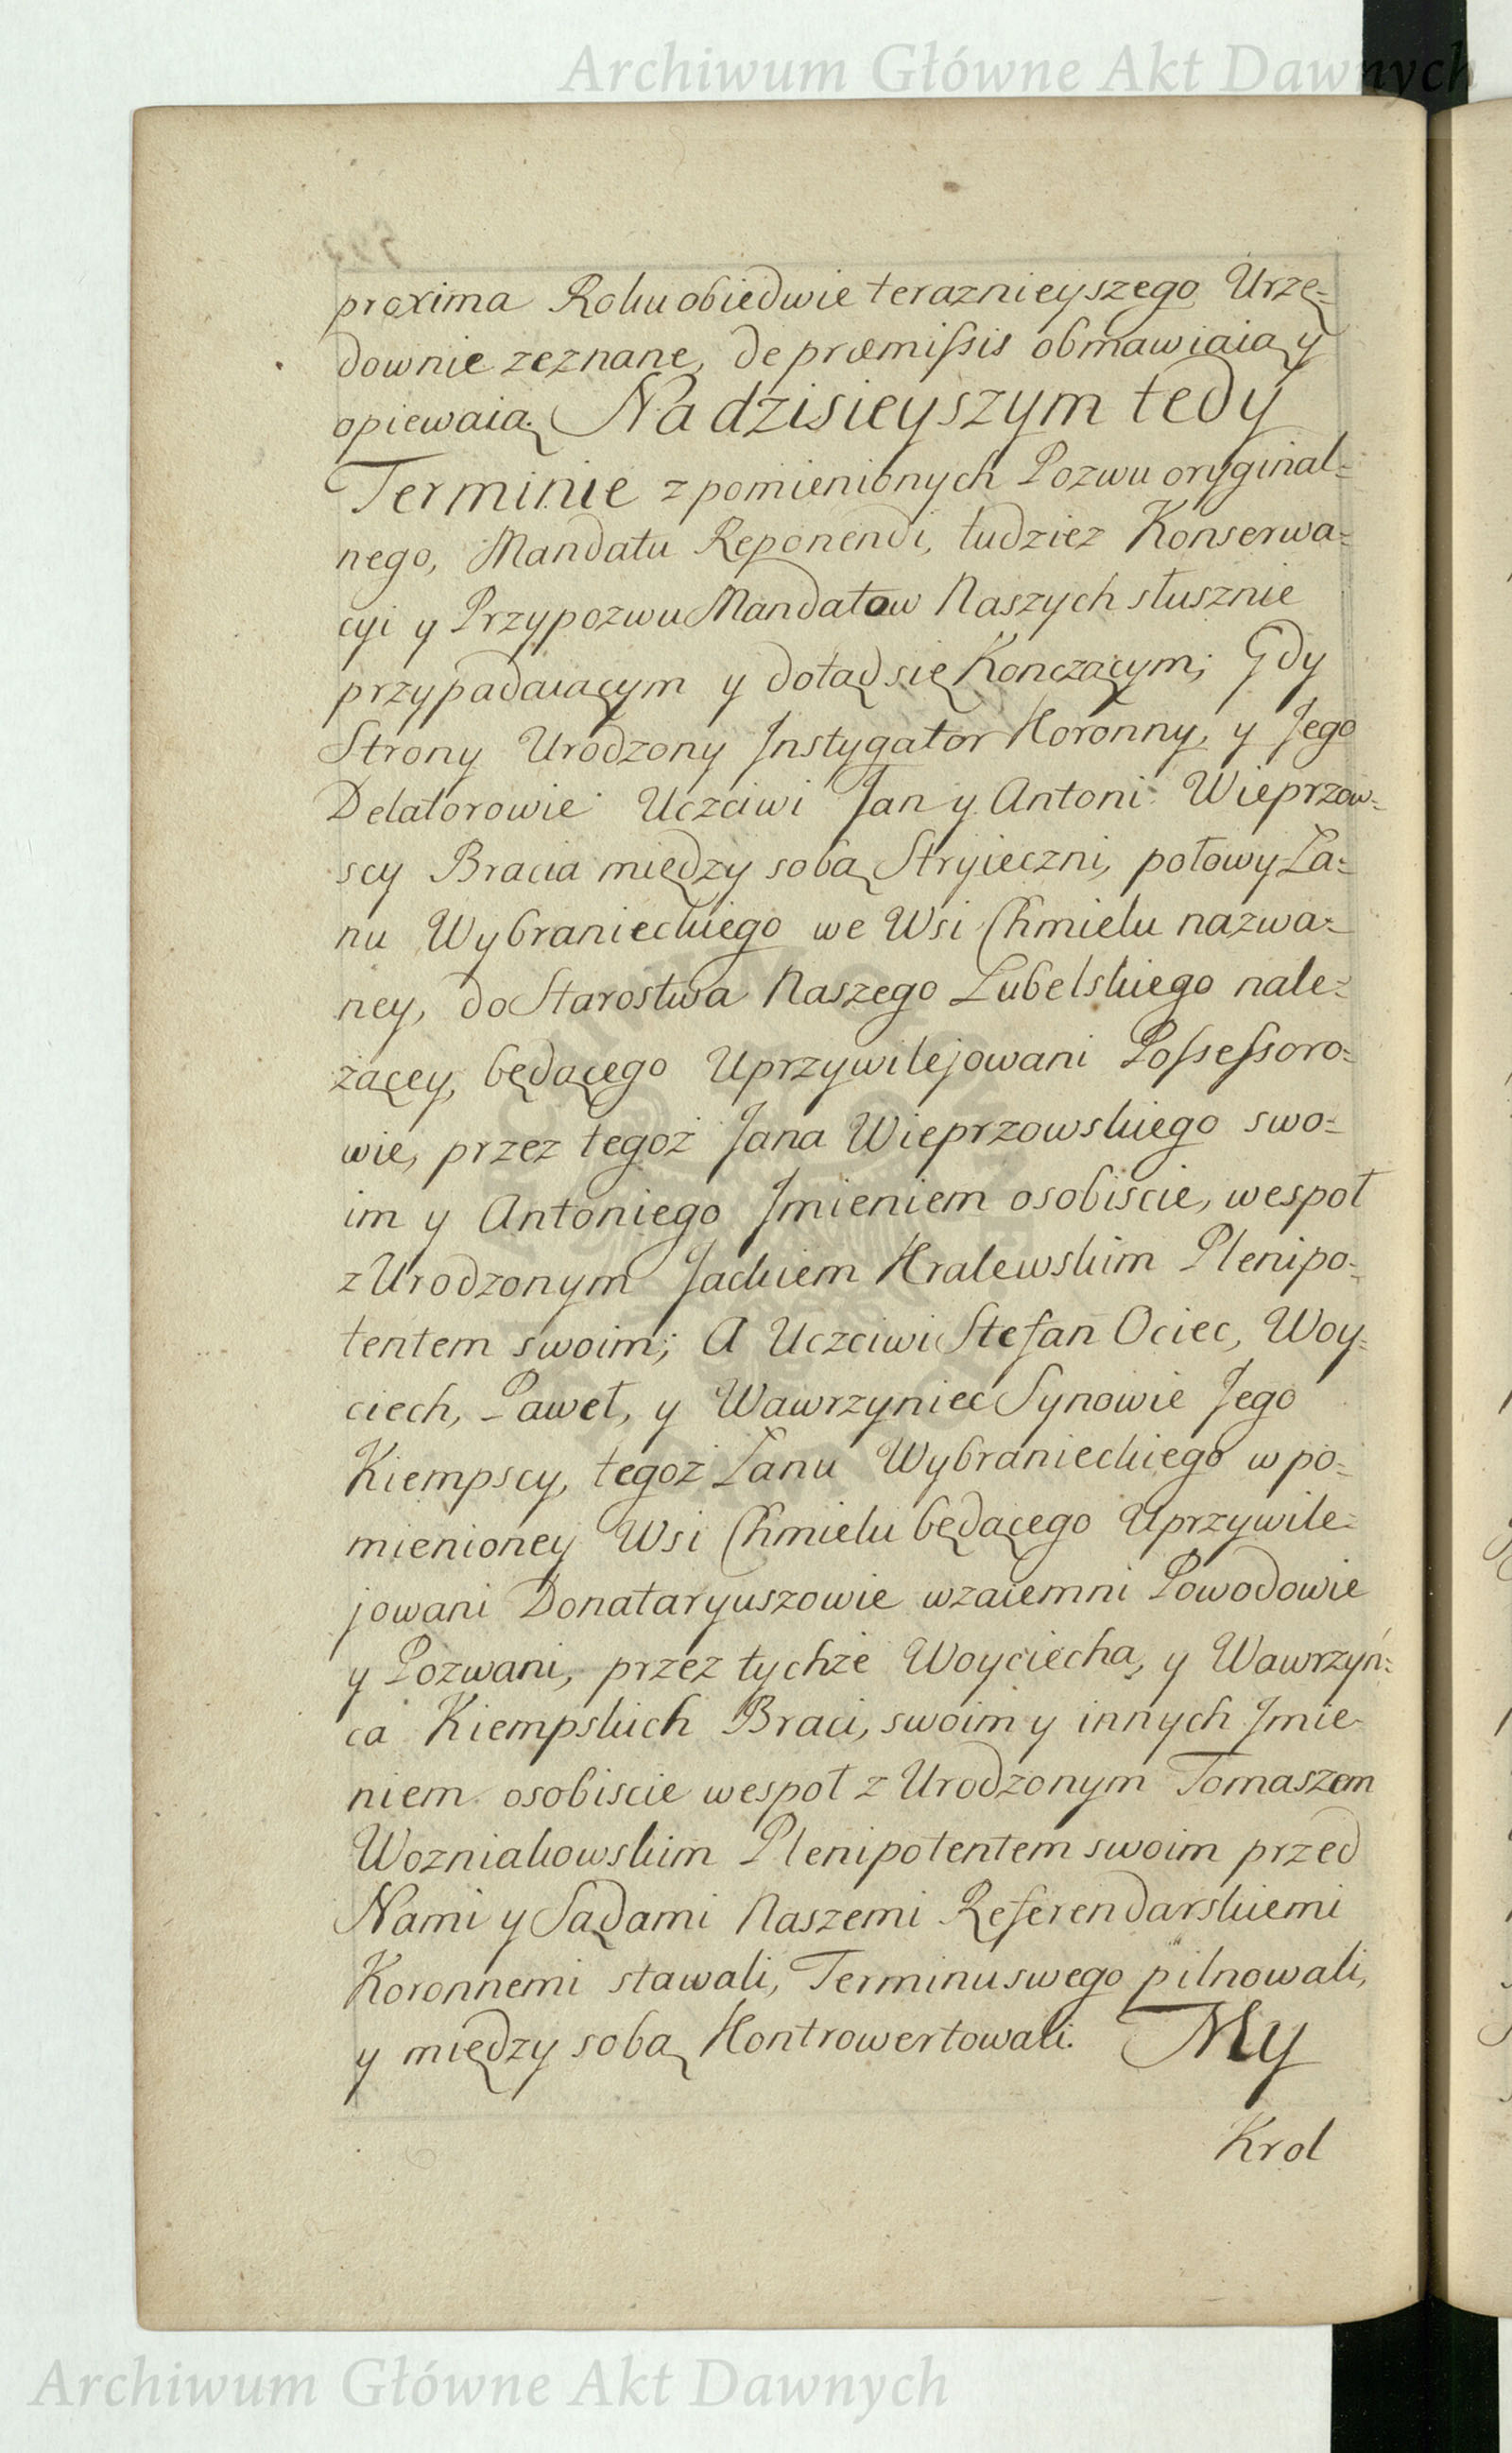 Archiwum Główne Akt Dawnych
proxima Roku obiedwie teraznieyszego Urzę=
downie zeznane, de præmissis obmawiaią y
opiewaią. Na dzisieyszym tedy
Terminie z pomienionych Pozwu oryginal=
nego, Mandatu Reponendi, tudziez Konserwa=
cyi y Przypozwu Mandatow Naszych słusznie
przypadaiącym y dotąd się Konczącym; Gdy
Strony Urodzony Instygator Koronny, y Jego
Delatorowie Uczciwi Jan y Antoni Wieprzow=
scy Bracia między sobą Stryieczni, połowy Ła=
nu Wybranieckiego we Wsi Chmielu nazwa=
ney, do Starostwa Naszego Lubelskiego nale=
żącey, będącego Uprzywilejowani Possessoro=
wie, przez tegoż Jana Wieprzowskiego swo=
im y Antoniego Imieniem osobiscie, wespoł
z Urodzonym Jackiem Kralewskim Plenipo=
tentem swoim; A Uczciwi Stefan Ociec, Woy=
ciech, Paweł, y Wawrzyniec Synowie Jego
Kiempscy, tegoż Łanu Wybranieckiego w po=
mienioney Wsi Chmielu będącego Uprzywile=
jowani Donataryuszowie wzaiemni Powodowie
y Pozwani, przez tychże Woyciecha, y Wawrzyń=
ca Kiempskich Braci, swoim y innych Imie=
niem osobiscie wespoł z Urodzonym Tomaszem
Wozniakowskim Plenipotentem swoim przed
Nami y Sądami Naszemi Referendarskiemi
Koronnemi stawali, Terminu swego pilnowali,
y między sobą Kontrowertowali. My
Krol
Archiwum Główne Akt Dawnych